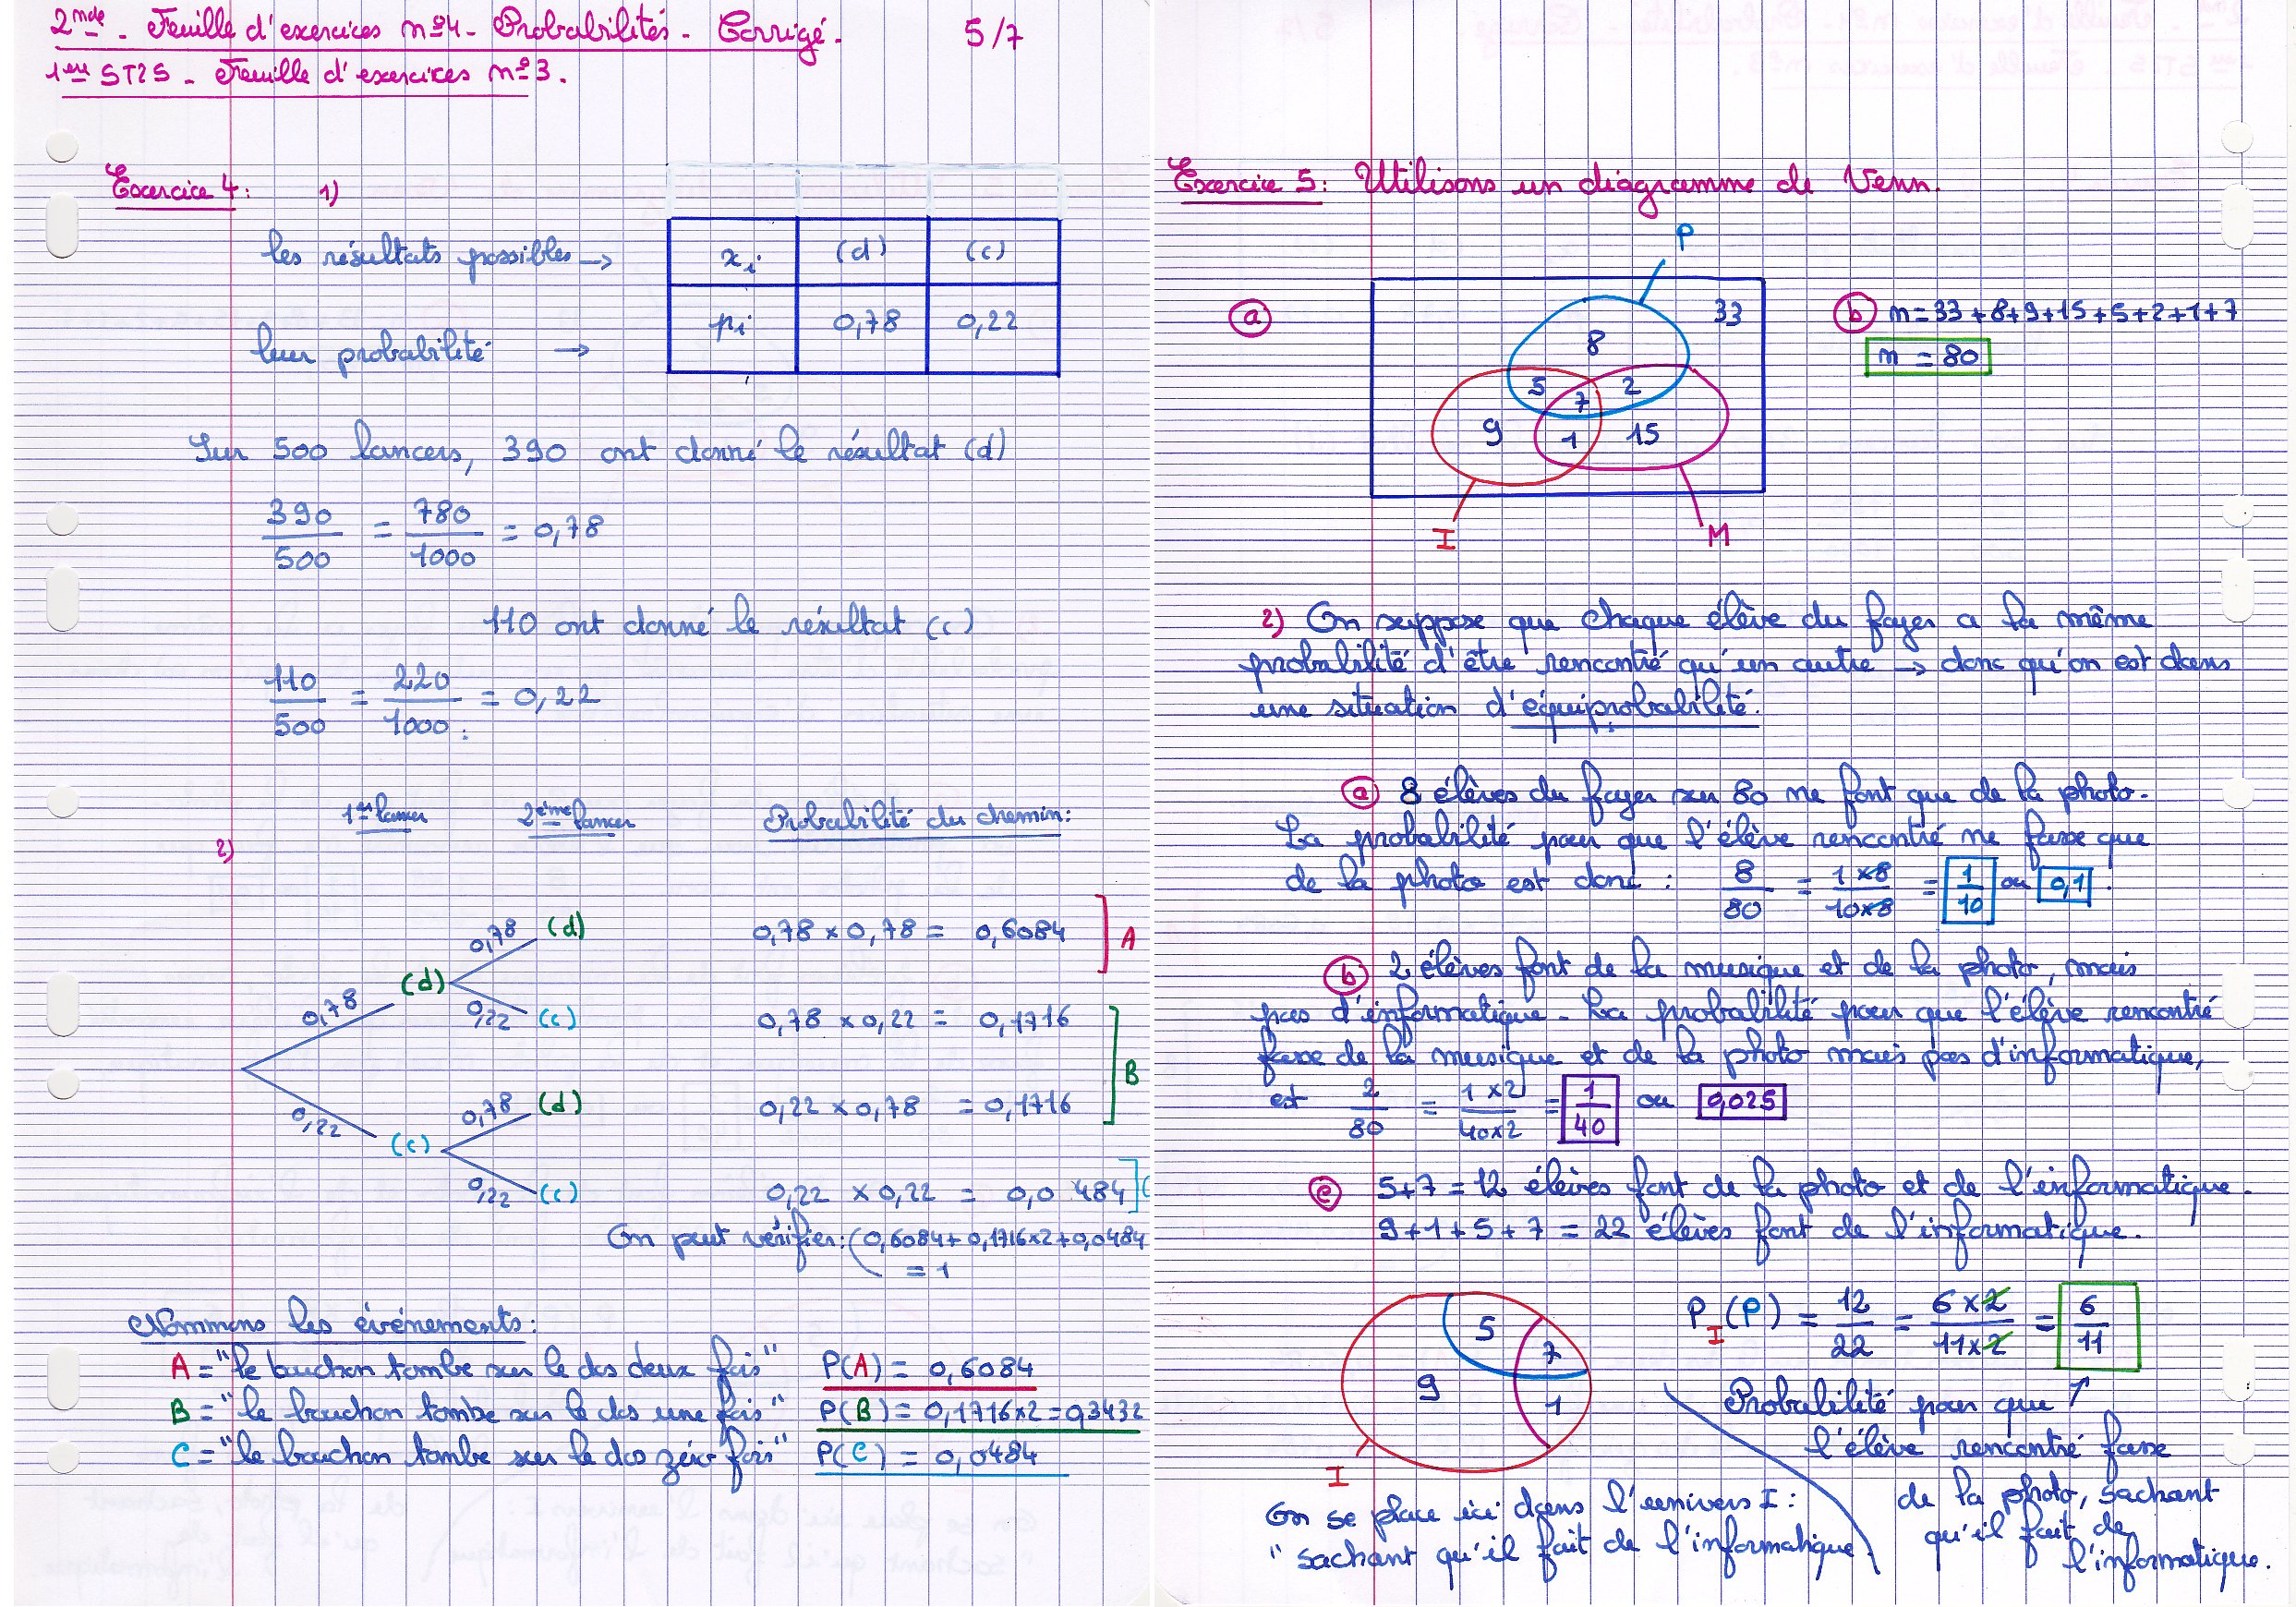 2nde - Feuille d'exercices n°4 - Probabilités - Corrigé. 5/7
1ère ST2S - Feuille d'exercices n°3.
Exercice 4: 1)
les résultats possibles →
xi (d) (c)
leur probabilité →
pi 0,78 0,22
Sur 500 lancers, 390 ont donné le résultat (d)
390/500 = 780/1000 = 0,78
110 ont donné le résultat (c)
110/500 = 220/1000 = 0,22
1er lancer 2ème lancer Probabilité du chemin:
2)
0,78 (d) 0,78 × 0,78 = 0,6084 ] A
0,78 (d)
0,22 (c) 0,78 × 0,22 = 0,1716
] B
0,78 (d) 0,22 × 0,78 = 0,1716
0,22 (c)
0,22 (c) 0,22 × 0,22 = 0,0484 ] C
On peut vérifier: (0,6084 + 0,1716×2 + 0,0484
= 1
Nommons les événements:
A = "le bouchon tombe sur le dos deux fois" P(A) = 0,6084
B = "le bouchon tombe sur le dos une fois" P(B) = 0,1716×2 = 0,3432
C = "le bouchon tombe sur le dos zéro fois" P(C) = 0,0484
Exercice 5: Utilisons un diagramme de Venn.
P
a
33
8
5 7 2
9 1 15
I M
b n = 33 + 8 + 9 + 15 + 5 + 2 + 1 + 7
n = 80
2) On suppose que chaque élève du foyer a la même
probabilité d'être rencontré qu'un autre → donc qu'on est dans
une situation d'équiprobabilité.
a 8 élèves du foyer sur 80 ne font que de la photo.
La probabilité pour que l'élève rencontré ne fasse que
de la photo est donc : 8/80 = 1×8/10×8 = 1/10 ou 0,1.
b 2 élèves font de la musique et de la photo, mais
pas d'informatique. La probabilité pour que l'élève rencontré
fasse de la musique et de la photo mais pas d'informatique,
est 2/80 = 1×2/40×2 = 1/40 ou 0,025
c 5+7 = 12 élèves font de la photo et de l'informatique.
9+1+5+7 = 22 élèves font de l'informatique.
5
7
9
1
I
PI(P) = 12/22 = 6×2/11×2 = 6/11
Probabilité pour que ↑
l'élève rencontré fasse
de la photo, sachant
qu'il fait de
l'informatique.
On se place ici dans l'univers I :
"sachant qu'il fait de l'informatique.